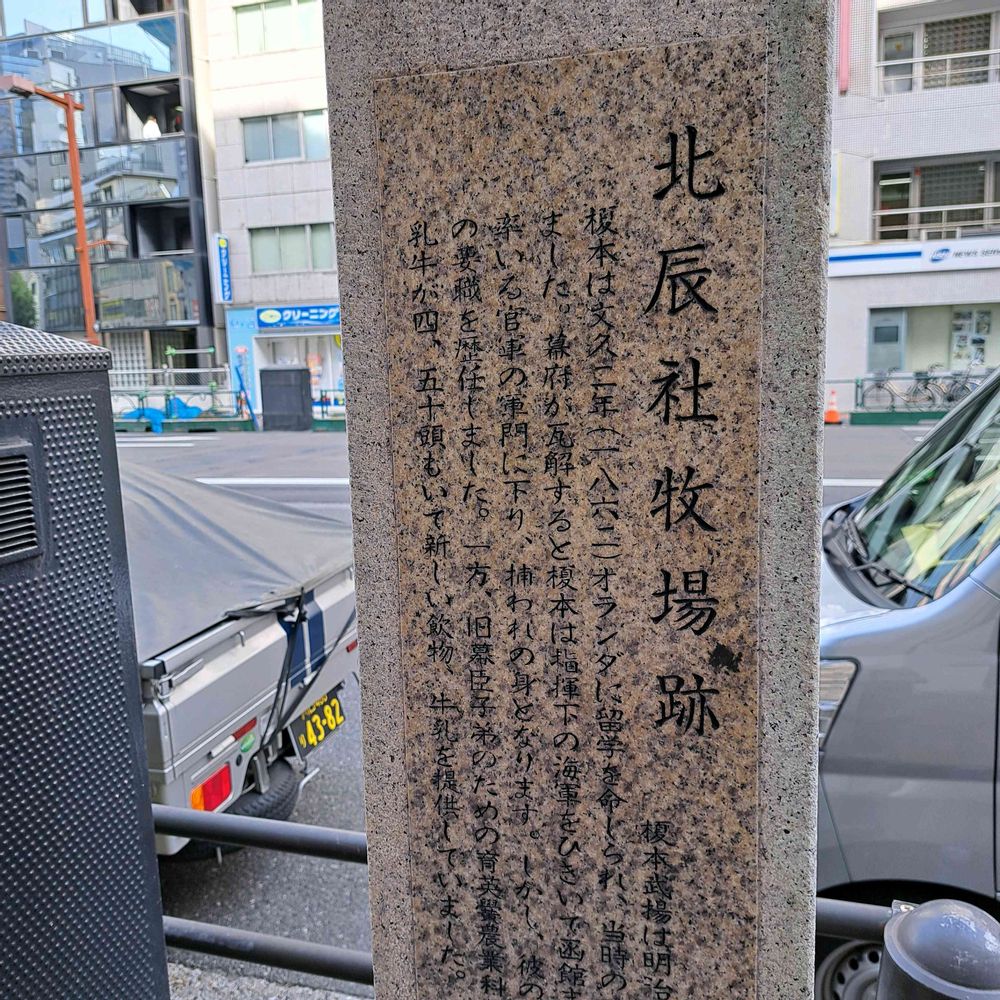 北辰社牧場跡
榎本武揚は明治
榎本は文久二年(一八六二)オランダに留学を命じられ、当時の
ました。幕府が瓦解すると榎本は指揮下の海軍をひきいて函館
率いる官軍の軍門に下り、捕われの身となります。しかし、彼の
の要職を歴任しました。一方、旧幕臣子弟のための育英黌農業科
乳牛が四、五十頭もいて新しい飲物、牛乳を提供していました。
クリーニング
クリーニング
NEWS SERV
43-82